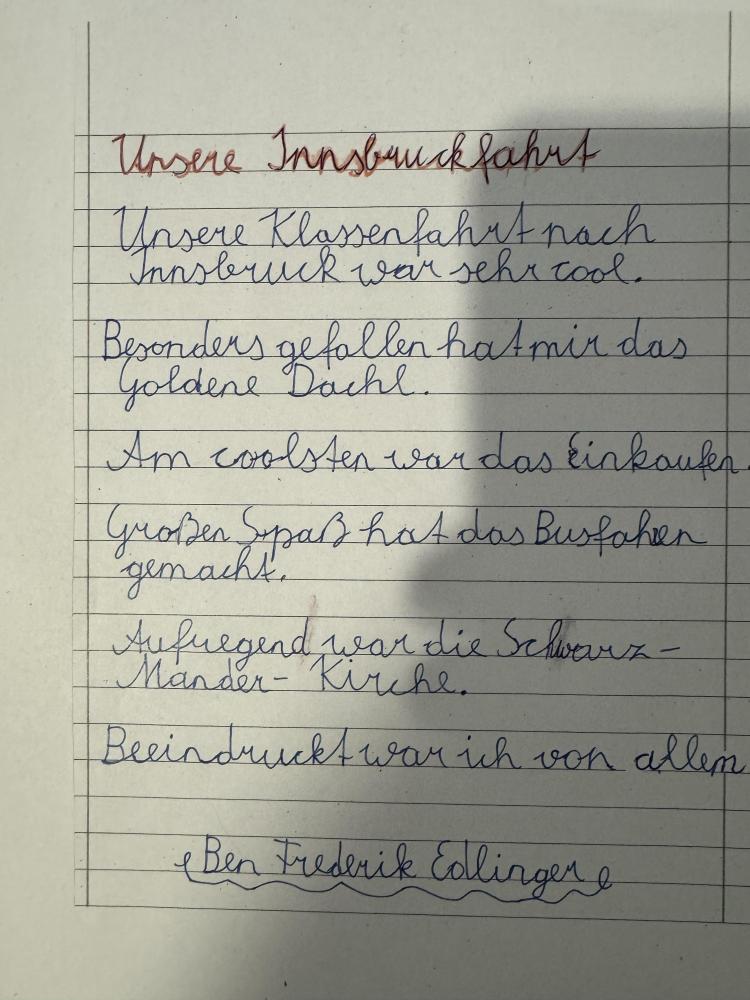 Unsere Innsbruckfahrt
Unsere Klassenfahrt nach
Innsbruck war sehr cool.
Besonders gefallen hat mir das
Goldene Dachl.
Am coolsten war das Einkaufen.
Großen Spaß hat das Busfahren
gemacht.
Aufregend war die Schwarz-
Mander-Kirche.
Beeindruckt war ich von allem
Ben Frederik Edlinger